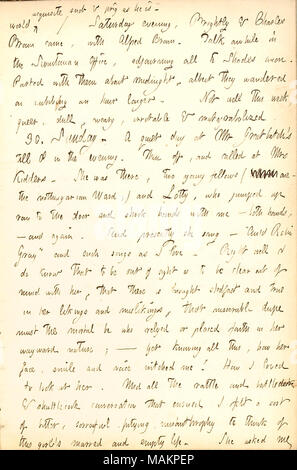 exquisite snob & prig as he is.
world
Saturday evening, Brightly & Charles
Brown came, with Alfred Crown. Talk awhile in
the Lieutenan Office, adjourning all to Shades anon.
Parted with them about midnight, albeit they wandered
an outlying an hour longer. Not well this week
queer, dull, weary, irritable & uncomfortable.
30. Sunday. A quiet day at Mr Greatbatch's
till 6 in the evening. Then off, and called at Mrs
Kidders. She was there, two young fellows ( are
the nothingarian Ward,) and Lotty, who jumped up
ran to the door and shook hands with me — both hands,
— and again. And presently she sang — "Auld Robin
Gray" and such songs as I love. Right well I
do know that to be out of sight is to be clear out of
mind with her, that there is naught stedfast and true
in her likings and mislikings, that miserable dupe
must the mortal be who relied or placed faith in her
wayward nature; — yet knowing all this, how her
face, smile and voice witched me! How I loved
to look at her. Mid all the rattle and battledore
& shuttlecock conversation that ensued I felt a sort
of bitter, sorrowful, pitying, to think of
this girl's marred and empty life. She asked me
alamy
Image ID: MAKPEP
www.alamy.com